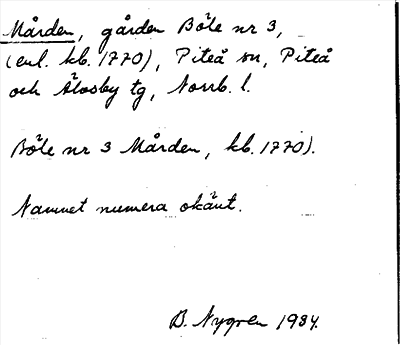 Mården, gården Böle nr 3,
(enl. kb. 1770), Piteå sn, Piteå
och Älvsby tg, Norrb. l.
Böle nr 3 Mården, kb. 1770).
Namnet numera okänt.
B. Nygren 1984.